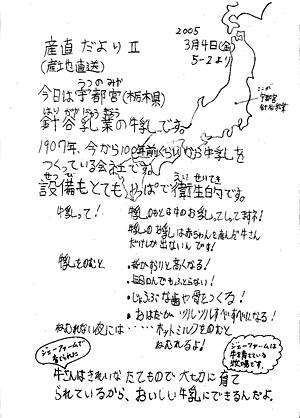 産直だよりⅡ
(産地直送)
2005
3月4日(金)
5-2より
うつのみや
今日は宇都宮(栃木県)
はりがやにゅうぎょう
針谷乳業の牛乳です。
ここが
宇都宮
針谷乳業
1907年、今から100年前ぐらいから牛乳を
つくっている会社です。
せつび えいせいてき
設備もとても、りっぱで衛生的です。
牛乳って!
牛乳のもとは牛のお乳
牛のお乳は赤ちゃんを産んだ牛さん
だけしか出ないんです!
牛乳をのむと
高くなる!
毎日のんでもふとらない!
じょうぶな歯や骨をつくる!
おはだがツルツルすべすべになる!
ねむれない夜には……ホットミルクをのむと
ねむれるよ!
ジェーファームで
育てられた
ジェーファームは
牛を育てている
牧場です。
牛さんはきれいなたてもので大切に育て
られているから、おいしい牛乳にできるんだよ。